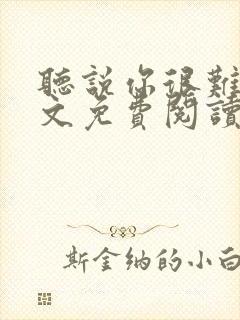 聽説你很難
文免費閱讀
斯金纳的小白